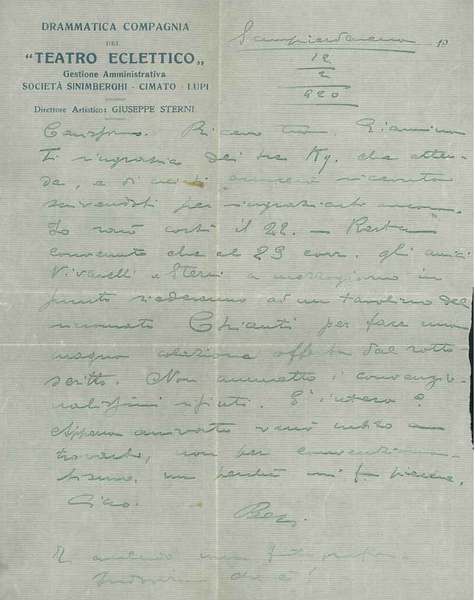 DRAMMATICA COMPAGNIA
DEL
"TEATRO ECLETTICO"
Gestione Amministrativa
SOCIETÀ SINIMBERGHI - CIMATO - LUPI
Direttore Artistico: GIUSEPPE STERNI
Sampierdarena 19
12
2
920
Carissimo. Ricevo tua. Giannino
Ti ringrazia dei tre Kg. che atten-
de, e di cui ti
scrivendoti per ringraziarti ancora.
Io sarò costì il 22. — Resta
convenuto che al 23 corr. gli amici
Vivarelli e Sterni a mezzogiorno in
punto siederanno ad un tavolino del
rinomato Chianti per fare una
magna colazione offerta dal sotto
scritto. Non ammetto i convenzio-
nalissimi rifiuti. È inteso?
Appena arrivato verrò subito a
trovarti, non per
ma perchè mi fa piacere.
Ciao.
una fotografia